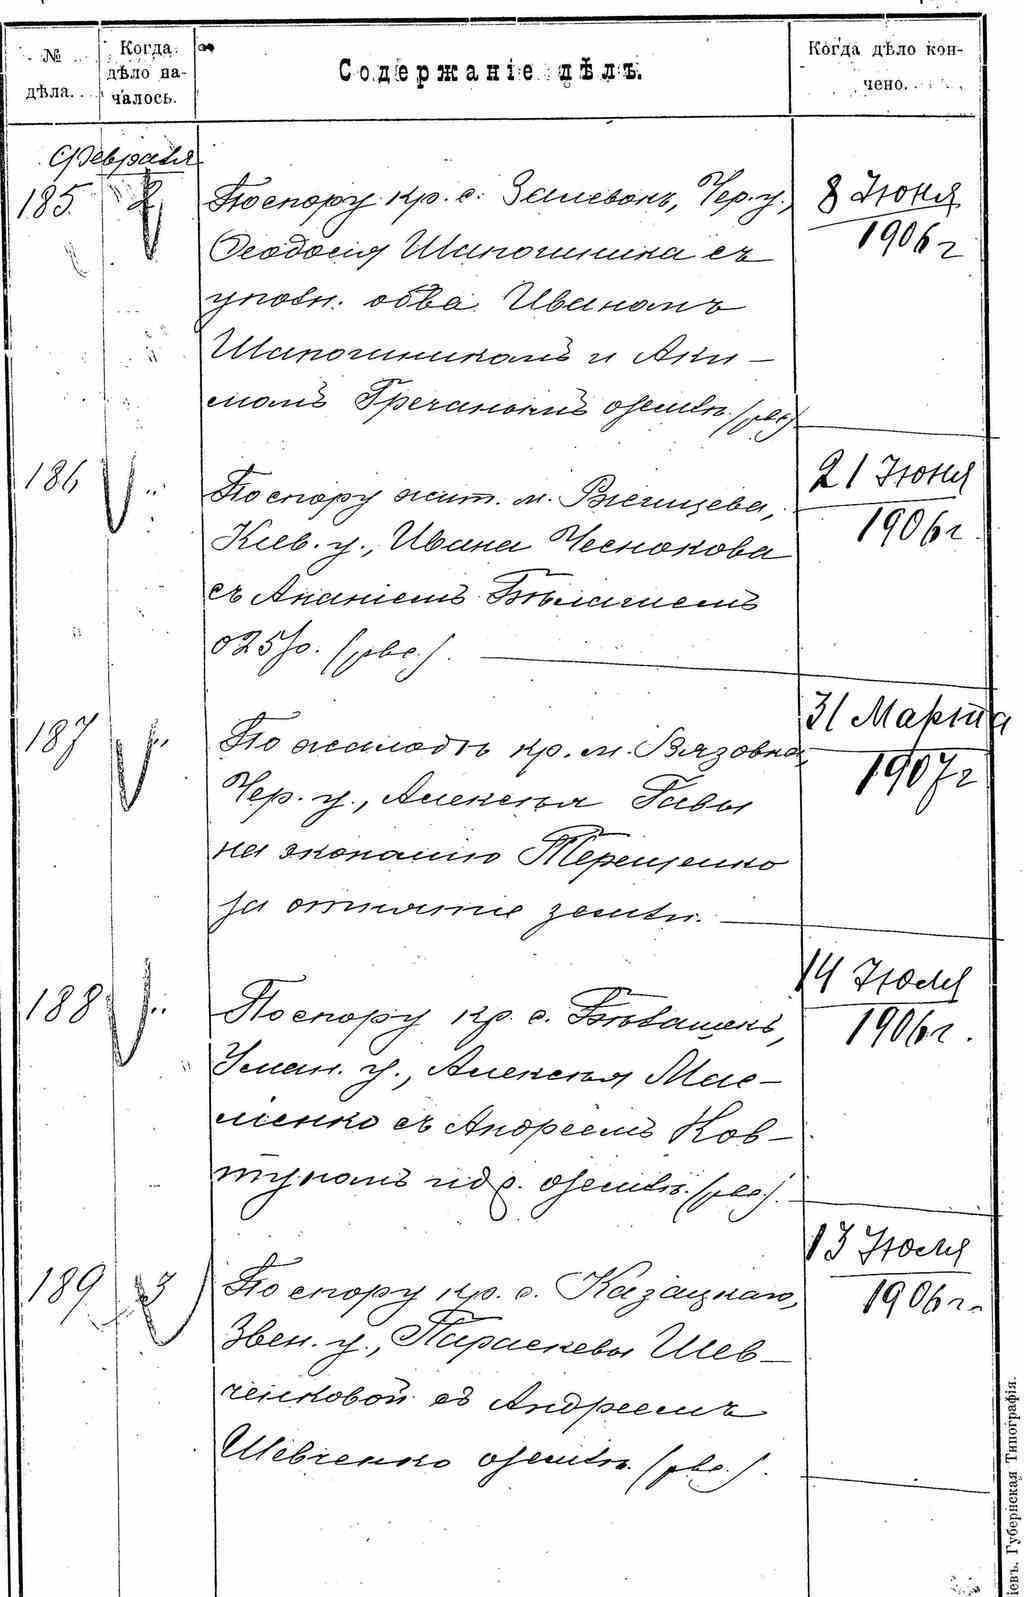 № дѣла.
Когда дѣло началось.
Содержаніе дѣлъ.
Когда дѣло кончено.
Февраля
185
2
По спору кр. с. Залевокъ, Чер. у.,
Ѳеодосія Шапошника съ
уполн. об-ва Иваномъ
Шапошникомъ и Аки-
момъ Гречанымъ о землѣ.
8 Іюня
1906 г
186
"
По спору жит. м. Ржищева,
Кіев. у., Ивана Чеснокова
съ Ананіемъ
о 25 р.
21 Іюня
1906 г.
187
"
По жалобѣ кр. м. Вязовка,
Чер. у., Алексѣя Гавы
на экономію Терещенко
за отнятіе земли.
31 Марта
1907 г
188
"
По спору кр. с.
Уман. у., Алексѣя Мас-
ленко съ Андреемъ Ков-
туномъ и др. о землѣ.
14 Іюля
1906 г.
189
3
По спору кр. с. Казацкаго,
Звен. у., Параскевы Шев-
ченковой съ Андреемъ
Шевченко о землѣ.
13 Іюля
1906 г.
іевъ. Губернская Типографія.